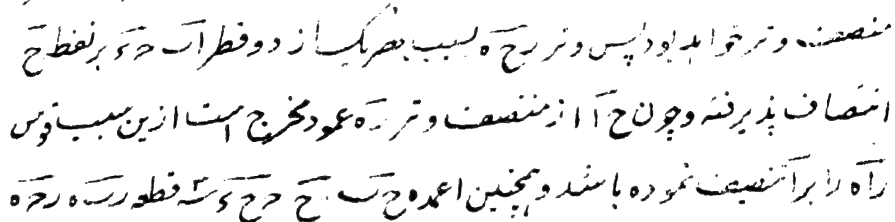 منصف وتر خواهد بود پس وتر رح ه بسبب هر یک از دو قطر اب حء بر نقطه ح
انتصاف پذیرفته و چون ح آ از منتصف وتر ره عمود مخرج است ازین سبب قوس
راه را برآ تنصیف نموده باشد و همچنین اعمده ح ب ح ح ح ء سه قطعه